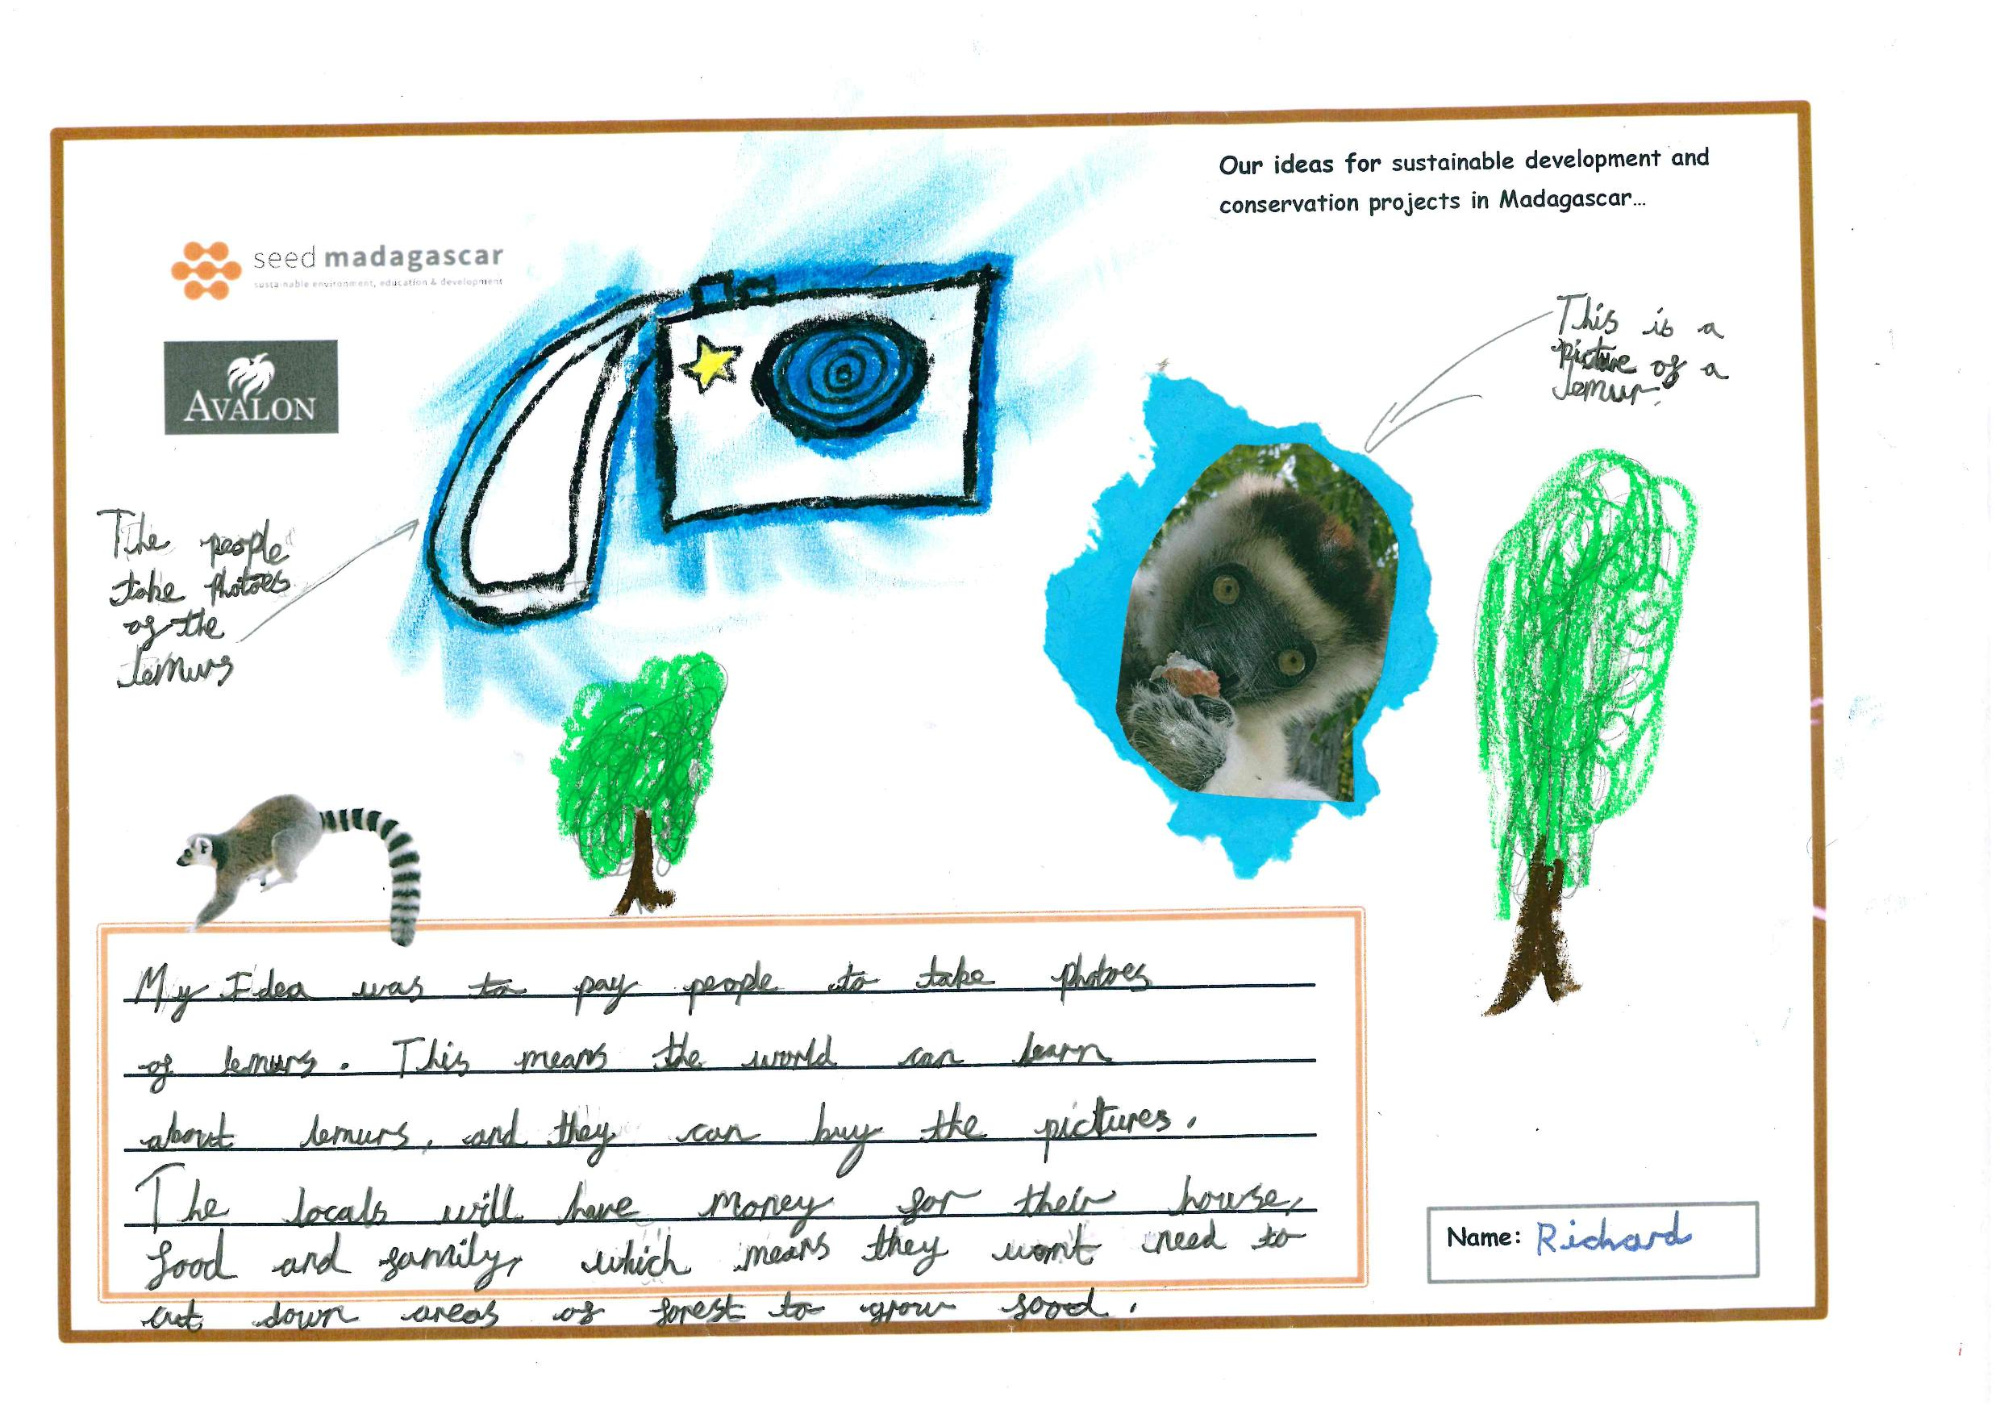 Our ideas for sustainable development and
conservation projects in Madagascar...
seed madagascar
sustainable environment, education & development
AVALON
This is a
picture of a
lemur.
The people
take photoes
of the
lemurs
My Idea was to pay people to take photoes
of lemurs. This means the world can learn
about lemurs, and they can buy the pictures.
The locals will have money for their house,
food and family, which means they wont need to
cut down areas of forest to grow food.
Name: Richard